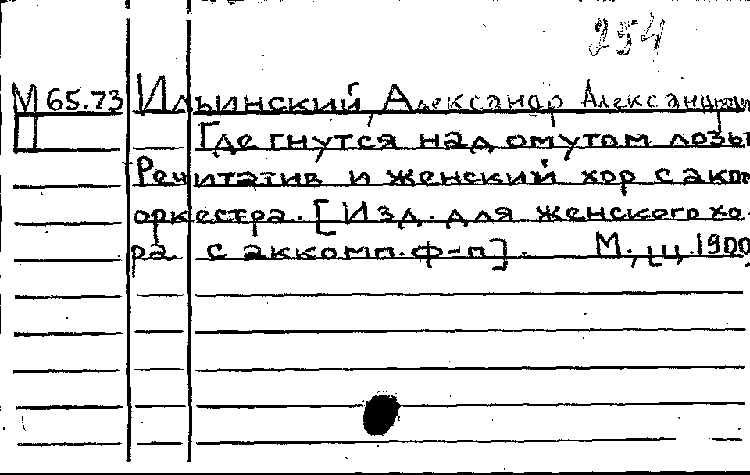 254
М 65.73 Ильинский, Александр Александрович
П Где гнутся над омутом лозы
Речитатив и женский хор с акком
оркестра. [Изд. для женского хо-
ра с аккомп. ф-п]. М., ц. 1900